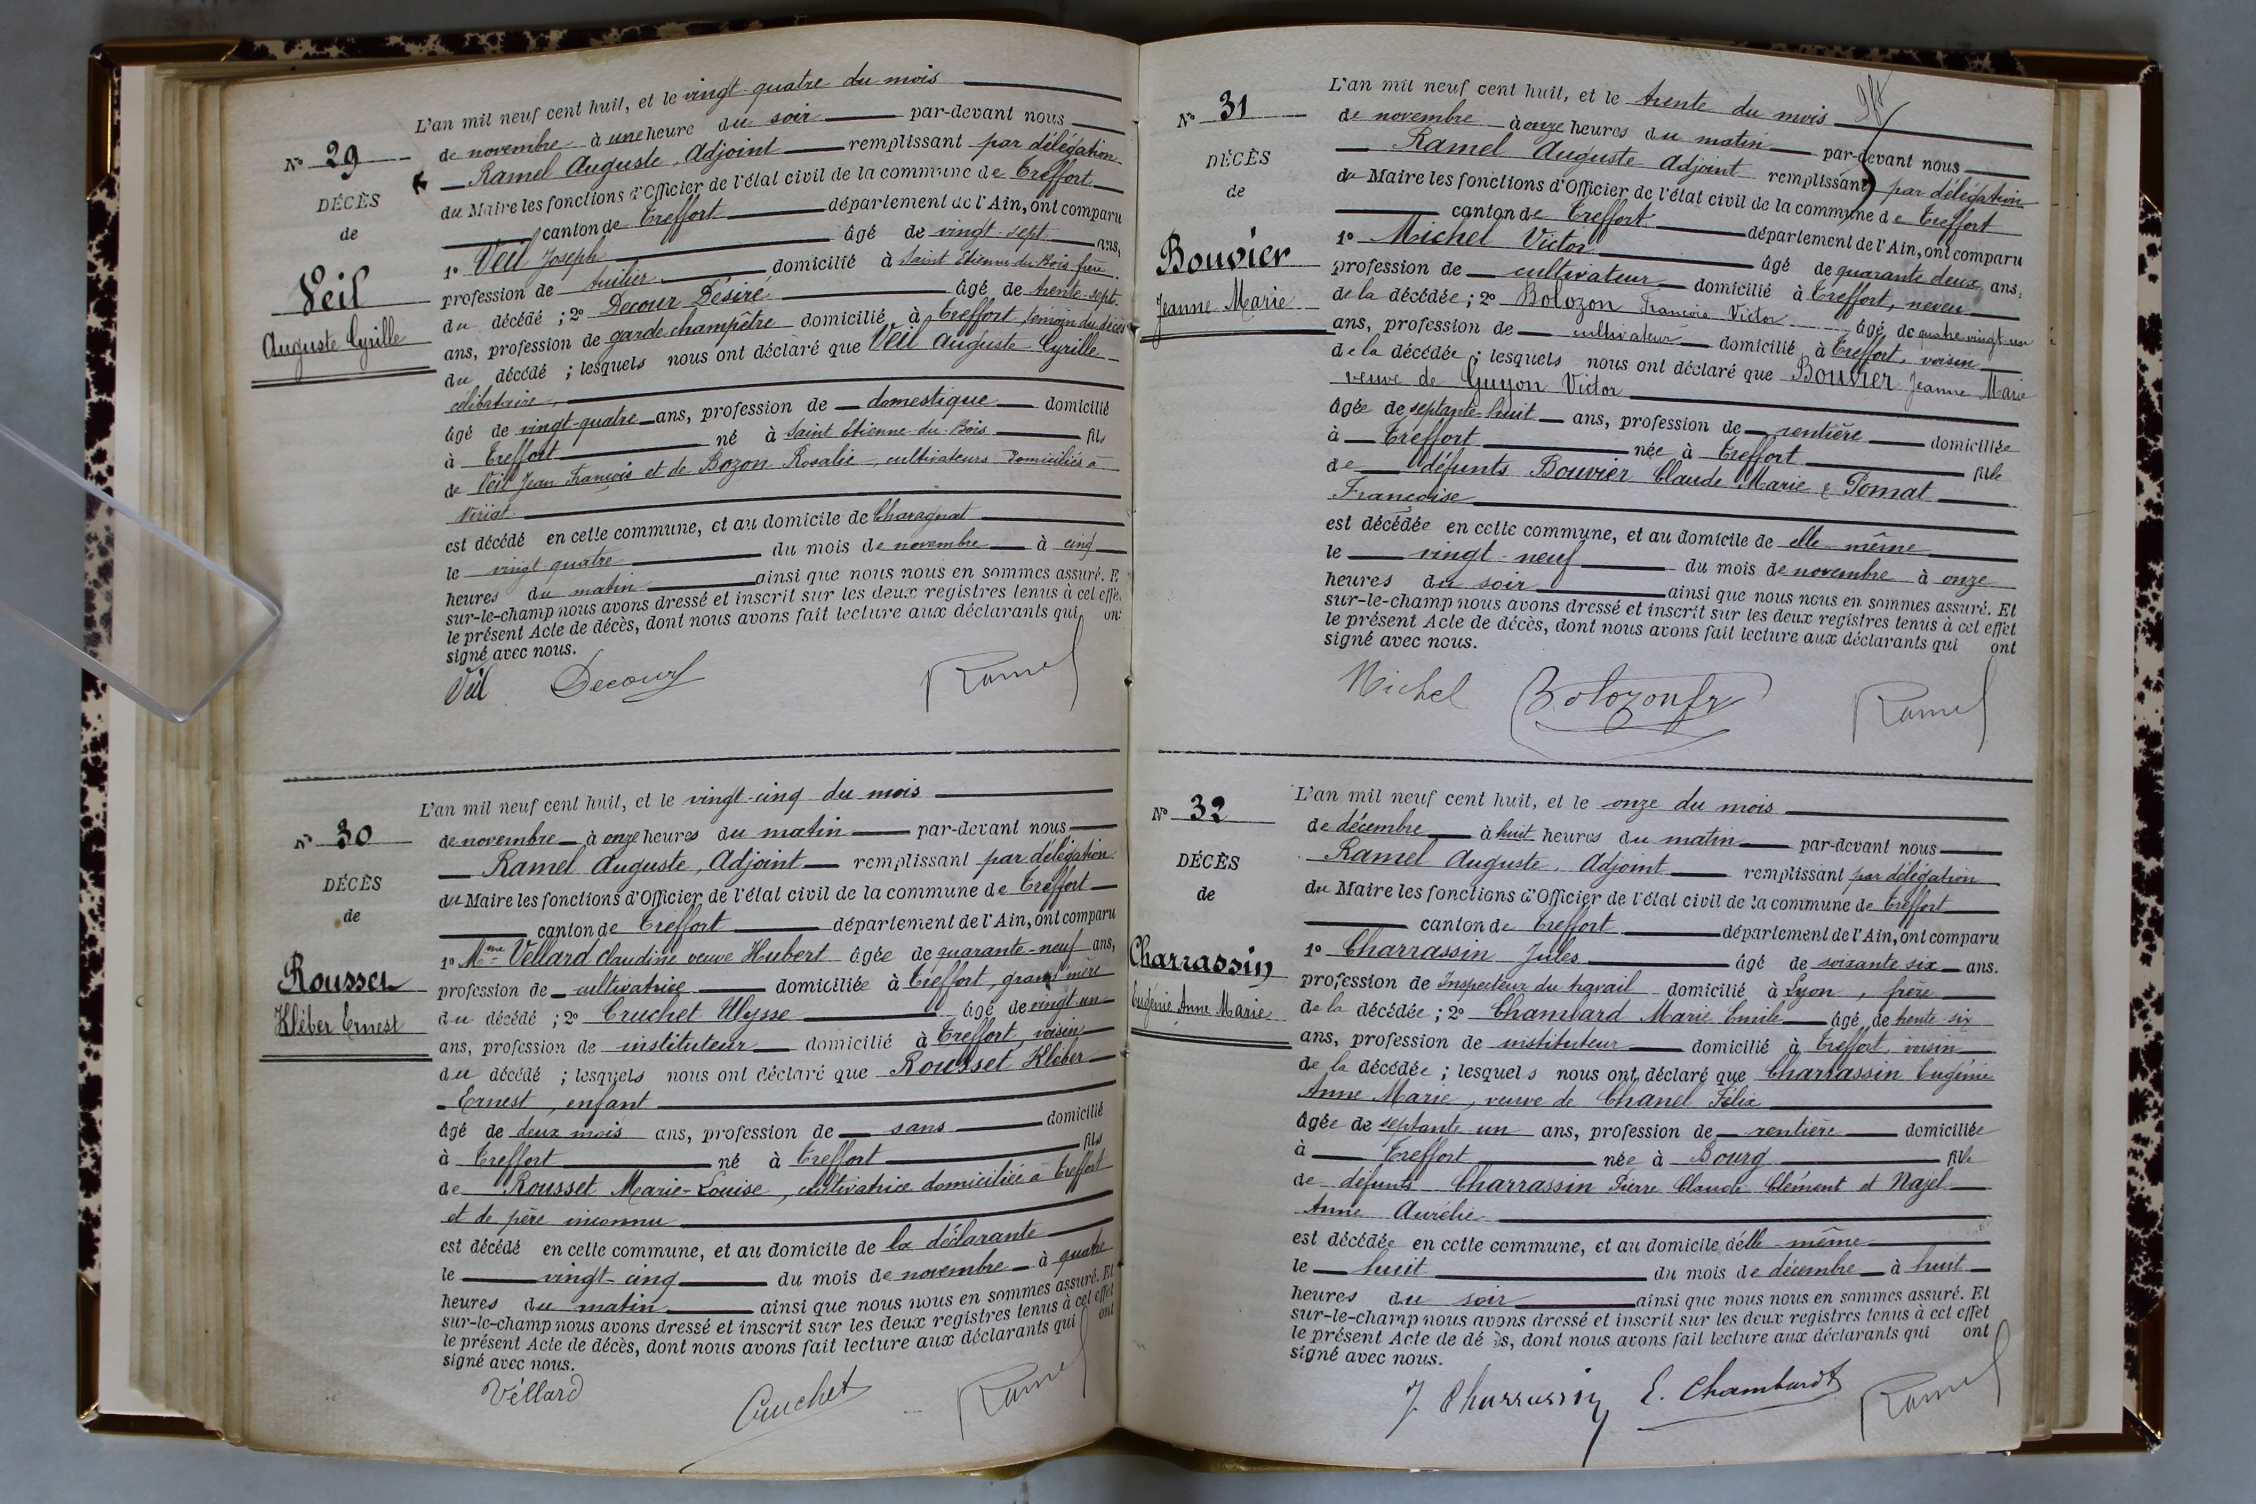 N° 29
DÉCÈS
de
Veil
Auguste Cyrille
L'an mil neuf cent huit, et le vingt-quatre du mois
de novembre à une heure du soir par-devant nous
Ramel Auguste, Adjoint remplissant par délégation
du Maire les fonctions d'Officier de l'état civil de la commune de Treffort
canton de Treffort département de l'Ain, ont comparu
1° Veil Joseph âgé de vingt-sept ans,
profession de tuilier domicilié à Saint Etienne du Bois frère
du décédé ; 2° Decour Désiré âgé de trente-sept
ans, profession de garde champêtre domicilié à Treffort, témoin du décès
du décédé ; lesquels nous ont déclaré que Veil Auguste Cyrille
célibataire,
âgé de vingt-quatre ans, profession de domestique domicilié
à Treffort né à Saint Etienne-du-Bois fils
de Veil Jean François et de Bozon Rosalie, cultivateurs domiciliés à
Viriat
est décédé en cette commune, et au domicile de Charagnat
le vingt quatre du mois de novembre à cinq
heures du matin ainsi que nous nous en sommes assuré. E
sur-le-champ nous avons dressé et inscrit sur les deux registres tenus à cet effe
le présent Acte de décès, dont nous avons fait lecture aux déclarants qui on
signé avec nous.
Veil Decour Ramel
N° 30
DÉCÈS
de
Rousset
Kléber Ernest
L'an mil neuf cent huit, et le vingt-cinq du mois
de novembre à onze heures du matin par-devant nous
Ramel Auguste, Adjoint remplissant par délégation
du Maire les fonctions d'Officier de l'état civil de la commune de Treffort
canton de Treffort département de l'Ain, ont comparu
1° Mme Vellard Claudine veuve Hubert âgée de quarante-neuf ans,
profession de cultivatrice domiciliée à Treffort, grand'mère
du décédé ; 2° Cruchet Ulysse âgé de vingt-un
ans, profession de instituteur domicilié à Treffort, voisin
du décédé ; lesquels nous ont déclaré que Rousset Kléber
Ernest, enfant
âgé de deux mois ans, profession de sans domicilié
à Treffort né à Treffort fils
de Rousset Marie-Louise, cultivatrice domiciliée à Treffort
et de père inconnu
est décédé en cette commune, et au domicile de la déclarante
le vingt-cinq du mois de novembre à quatre
heures du matin ainsi que nous nous en sommes assuré. Et
sur-le-champ nous avons dressé et inscrit sur les deux registres tenus à cet effet
le présent Acte de décès, dont nous avons fait lecture aux déclarants qui ont
signé avec nous.
Véllard Cruchet Ramel
N° 31
DÉCÈS
de
Bouvier
Jeanne Marie
L'an mil neuf cent huit, et le trente du mois
de novembre à onze heures du matin par-devant nous
Ramel Auguste Adjoint remplissant par délégation
du Maire les fonctions d'Officier de l'état civil de la commune de Treffort
canton de Treffort département de l'Ain, ont comparu
1° Michel Victor âgé de quarante deux ans,
profession de cultivateur domicilié à Treffort, neveu
de la décédée ; 2° Bolozon François Victor âgé de quatre vingt un
ans, profession de cultivateur domicilié à Treffort, voisin
de la décédée ; lesquels nous ont déclaré que Bouvier Jeanne Marie
veuve de Guyon Victor
âgée de septante-huit ans, profession de rentière domiciliée
à Treffort née à Treffort fille
de défunts Bouvier Claude Marie & Pomat
Françoise
est décédée en cette commune, et au domicile de elle-même
le vingt-neuf du mois de novembre à onze
heures du soir ainsi que nous nous en sommes assuré. Et
sur-le-champ nous avons dressé et inscrit sur les deux registres tenus à cet effet
le présent Acte de décès, dont nous avons fait lecture aux déclarants qui ont
signé avec nous.
Michel Bolozon fr Ramel
N° 32
DÉCÈS
de
Charrassin
Eugénie Anne Marie
L'an mil neuf cent huit, et le onze du mois
de décembre à huit heures du matin par-devant nous
Ramel Auguste, Adjoint remplissant par délégation
du Maire les fonctions d'Officier de l'état civil de la commune de Treffort
canton de Treffort département de l'Ain, ont comparu
1° Charrassin Jules âgé de soixante six ans.
profession de Inspecteur du travail domicilié à Lyon, frère
de la décédée ; 2° Chambard Marie Emile âgé de trente-six
ans, profession de instituteur domicilié à Treffort, voisin
de la décédée ; lesquels nous ont déclaré que Charrassin Eugénie
Anne Marie, veuve de Chanel Félix
âgée de septante un ans, profession de rentière domiciliée
à Treffort née à Bourg fille
de défunts Charrassin Pierre Claude Clément et Najel
Anne Aurélie
est décédée en cette commune, et au domicile d'elle-même
le huit du mois de décembre à huit
heures du soir ainsi que nous nous en sommes assuré. Et
sur-le-champ nous avons dressé et inscrit sur les deux registres tenus à cet effet
le présent Acte de dé ès, dont nous avons fait lecture aux déclarants qui ont
signé avec nous.
J. Charrassin E. Chambard Ramel